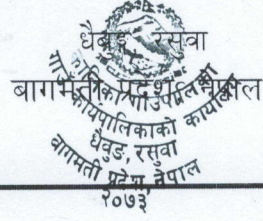 धैबुङ, रसुवा
बागमती प्रदेश, नेपाल
गाउँपालिका
कार्यपालिकाको कार्यालय
धैवुङ, रसुवा
बागमती प्रदेश, नेपाल
२०७३